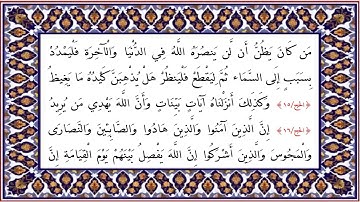 مَن كَانَ يَظُنُّ أَن لَّن يَنصُرَهُ اللَّهُ فِي الدُّنْيَا وَالْآخِرَةِ فَلْيَمْدُدْ
بِسَبَبٍ إِلَى السَّمَاءِ ثُمَّ لِيَقْطَعْ فَلْيَنظُرْ هَلْ يُذْهِبَنَّ كَيْدُهُ مَا يَغِيظُ
﴿الحج/١٥﴾ وَكَذَلِكَ أَنزَلْنَاهُ آيَاتٍ بَيِّنَاتٍ وَأَنَّ اللَّهَ يَهْدِي مَن يُرِيدُ
﴿الحج/١٦﴾ إِنَّ الَّذِينَ آمَنُوا وَالَّذِينَ هَادُوا وَالصَّابِئِينَ وَالنَّصَارَى
وَالْمَجُوسَ وَالَّذِينَ أَشْرَكُوا إِنَّ اللَّهَ يَفْصِلُ بَيْنَهُمْ يَوْمَ الْقِيَامَةِ إِنَّ